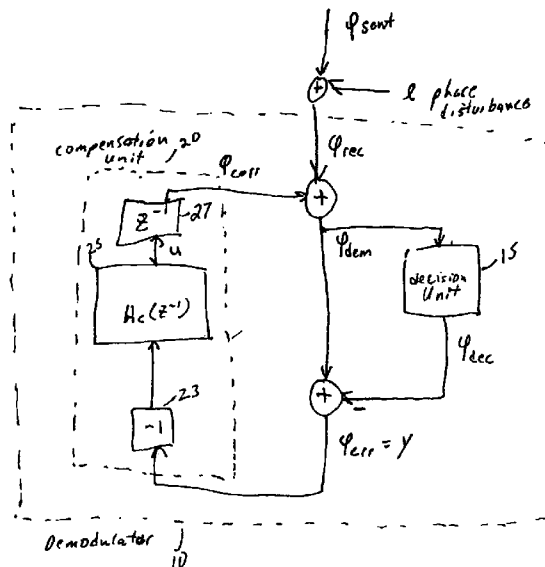 φsent
+
e phase
disturbance
compensation
unit
20
φcorr
φrec
z⁻¹
27
+
25
u
φdem
15
decision
Unit
Hc(z⁻¹)
φdec
23
-1
+
-
φerr = y
Demodulator
10